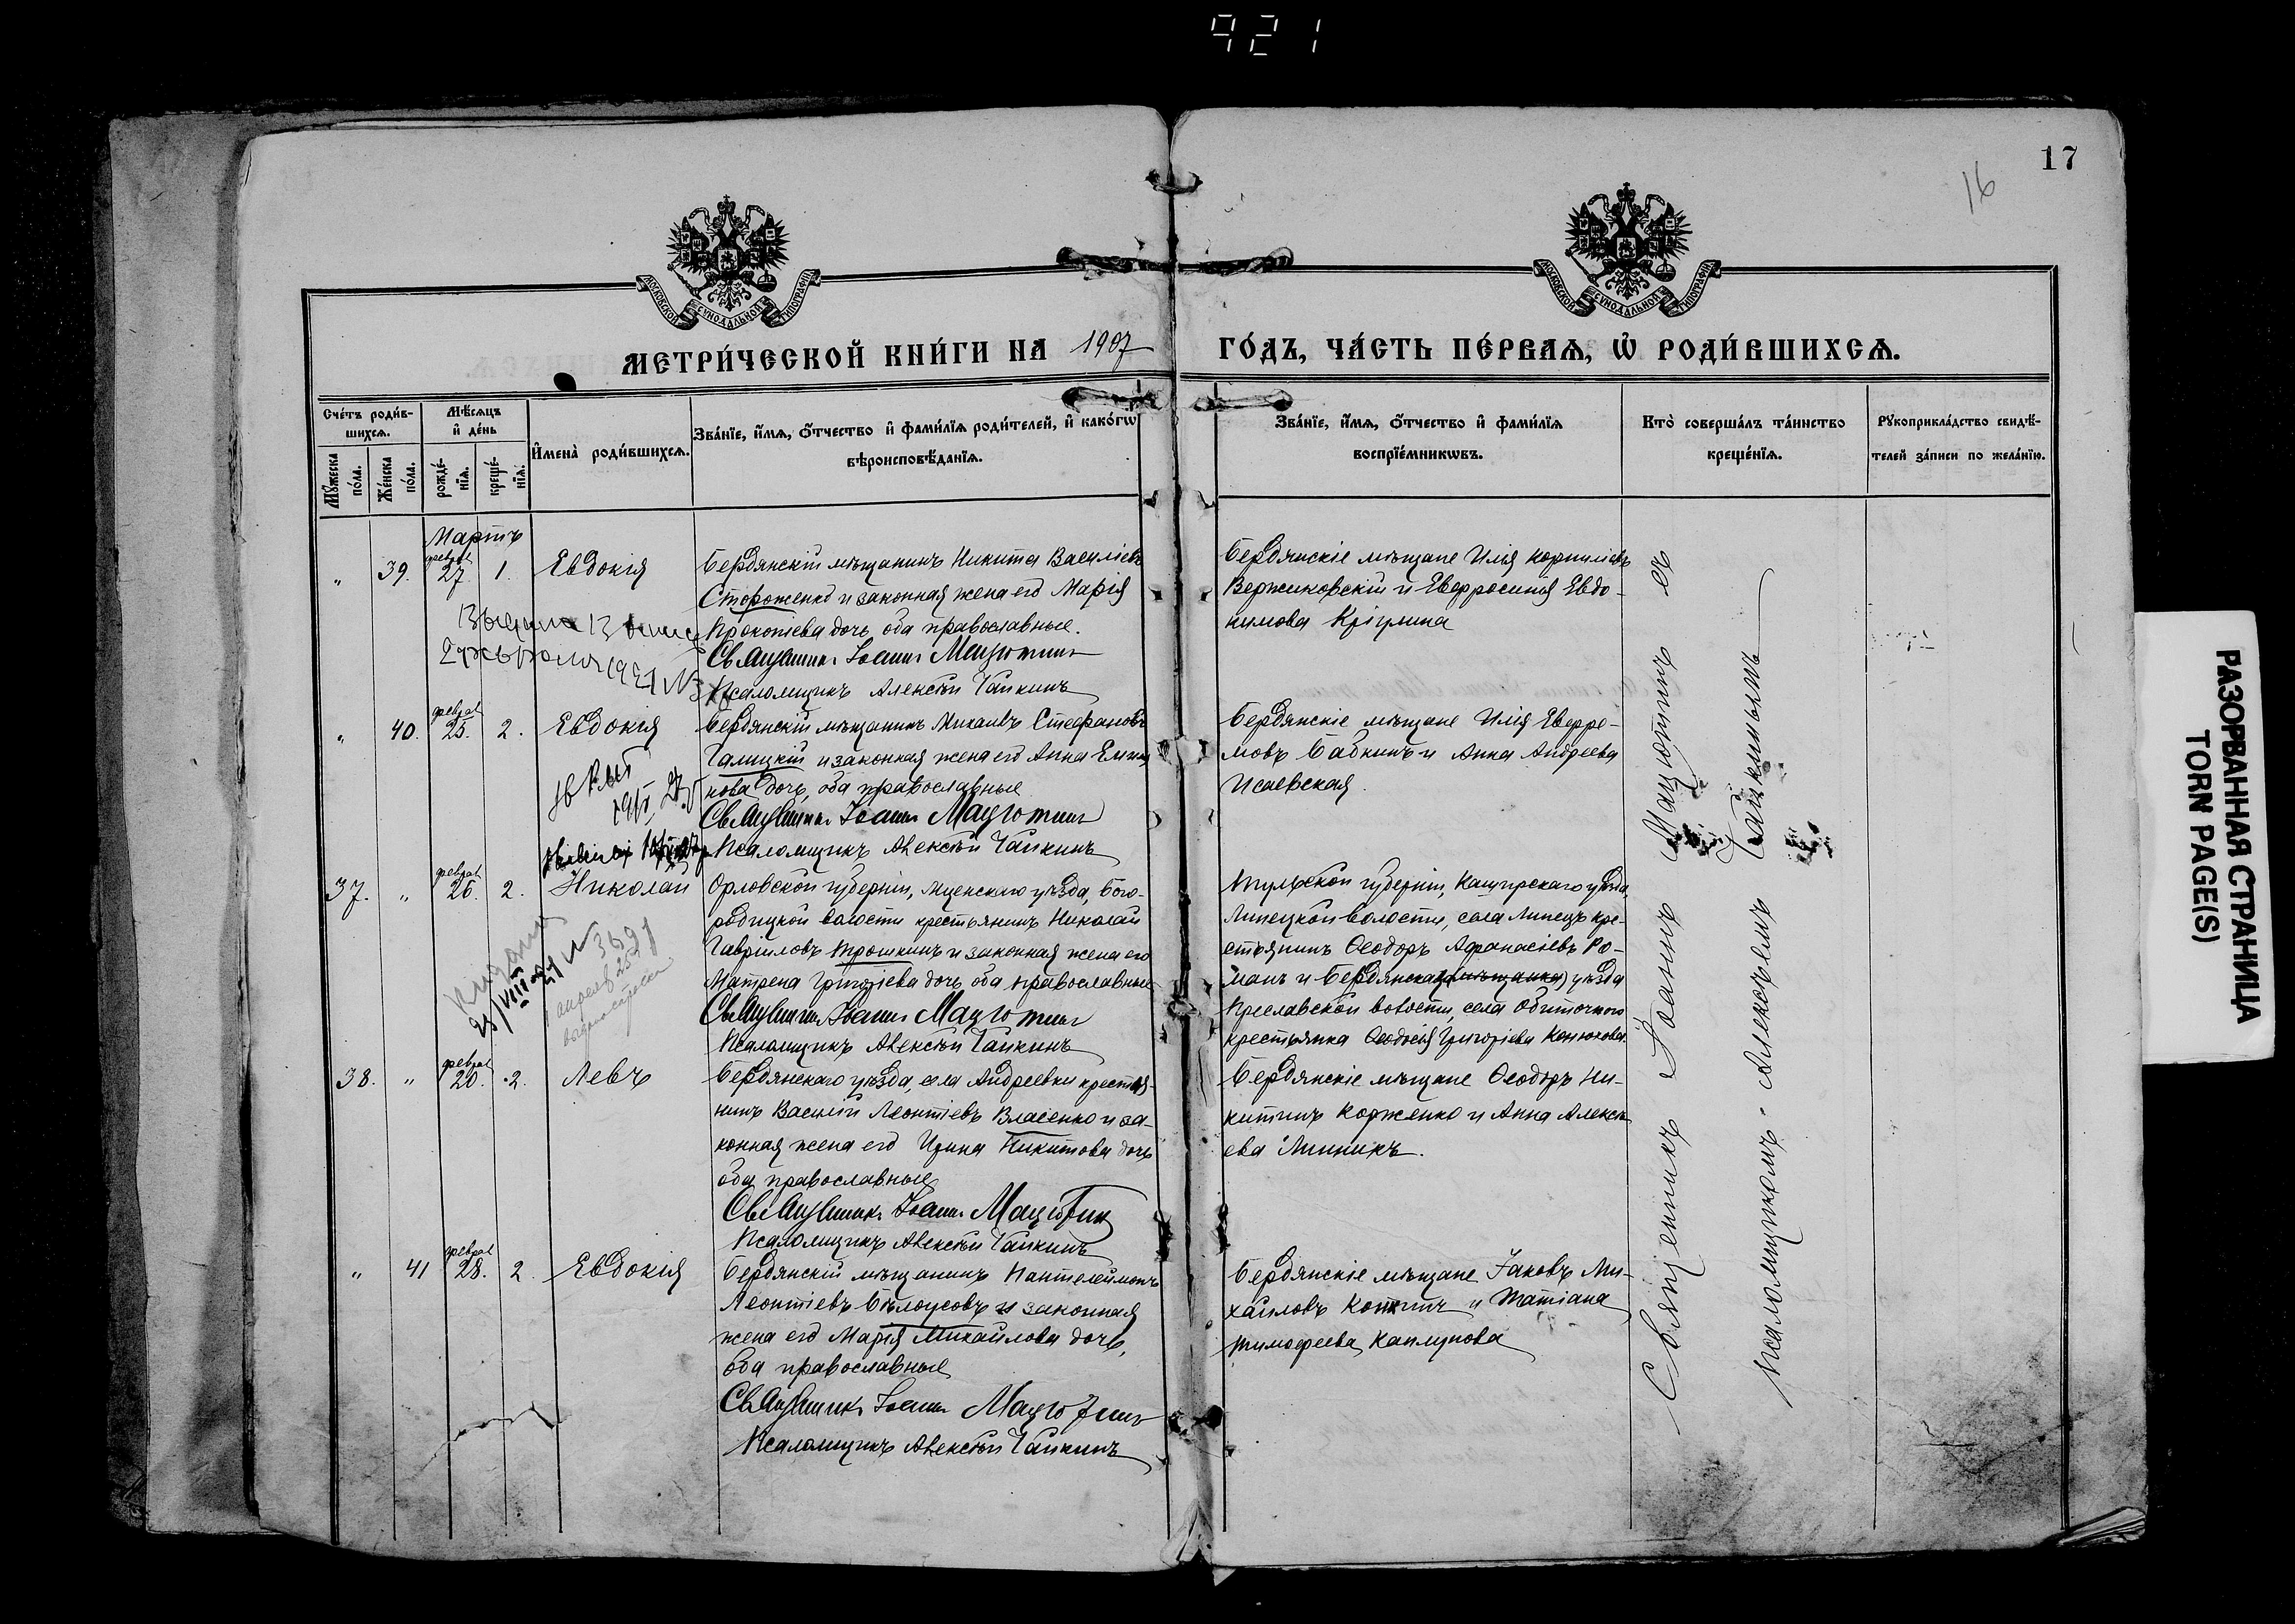 921
17
16
МОСКОВСКОЙ СѴНОДАЛЬНОЙ ТИПОГРАФІИ
МОСКОВСКОЙ СѴНОДАЛЬНОЙ ТИПОГРАФІИ
МЕТРИ́ЧЕСКОЙ КНИ́ГИ НА 1907 ГО́ДЪ, ЧА́СТЬ ПЕ́РВАѦ, Ѡ҆ РОДИ́ВШИХСѦ.
Сче́тъ роди́в-
шихсѧ.
Мѣ́сѧцъ
и҆ де́нь
Мꙋ́жеска
по́ла.
Же́нска
по́ла.
рожде́-
нїѧ.
креще́-
нїѧ.
И҆мена̀ роди́вшихсѧ.
Зва́нїе, и҆́мѧ, ѻ҆́тчество и҆ фами́лїѧ роди́телей, и҆ како́гѡ
вѣроисповѣ́данїѧ.
Зва́нїе, и҆́мѧ, ѻ҆́тчество и҆ фами́лїѧ
воспрїе́мникѡвъ.
Кто̀ соверша́лъ та́инство
креще́нїѧ.
Рꙋкоприкла́дство свидѣ́-
телей за́писи по жела́нїю.
Мартъ
феврал
" 39. 27 1. Евдокія
Бердянскій мѣщанинъ Никита Василіевъ
Стороженко и законная жена его Марія
Прокопіева дочь, оба православные.
Священникъ Іоаннъ Мацютинъ
Псаломщикъ Алексѣй Чайкинъ
Бердянскіе мѣщане Илія Корниліевъ
Вержиковскій и Евфросинія Евдо-
кимова
феврал
" 40. 25. 2. Евдокія
Бердянскій мѣщанинъ Михаилъ Стефановъ
Галицкій и законная жена его Анна
дочь, оба православные
Священникъ Іоаннъ Мацютинъ
Псаломщикъ Алексѣй Чайкинъ
Бердянскіе мѣщане Илія Ефре-
мовъ Бабкинъ и Анна Андреева
Исаевская.
феврал
37. " 26. 2. Николай
Орловской губерніи, Мценскаго уѣзда, Бого-
родицкой волости крестьянинъ Николай
Гавріиловъ Трошкинъ и законная жена его
Матрена Григоріева дочь, оба православные
Священникъ Іоаннъ Мацютинъ
Псаломщикъ Алексѣй Чайкинъ
Тульской губерніи, Каширскаго уѣзда,
Липецкой волости, села Липецъ кре-
стьянинъ Ѳеодоръ Афанасіевъ Ро-
манъ и Бердянска(го мѣщанка) уѣзда
волости, села Обиточнаго
крестьянка Ѳеодосія Григоріева Конюхова
феврал
38. " 20. 2. Левъ
Бердянскаго уѣзда, села Андреевки крестья-
нинъ Василій Леонтіевъ Власенко и за-
конная жена его Ирина Никитова дочь
оба православные
Священникъ Іоаннъ Мацютин
Псаломщикъ Алексѣй Чайкинъ
Бердянскіе мѣщане Ѳеодоръ Ни-
китинъ Корженко и Анна Алексѣ-
ева Линникъ.
феврал
" 41 28. 2. Евдокія
Бердянскій мѣщанинъ Пантелеймонъ
Леонтіевъ Бѣлоусовъ и законная
жена его Марія Михайлова дочь,
оба православные
Священникъ Іоаннъ Мацютинъ
Псаломщикъ Алексѣй Чайкинъ
Бердянскіе мѣщане Іаковъ Ми-
хайловъ и Татіана
Тимофеева Каплунова
Священникъ Іоаннъ Мацютинъ съ
псаломщикомъ Алексѣемъ Чайкинымъ
РАЗОРВАННАЯ СТРАНИЦА
TORN PAGE(S)